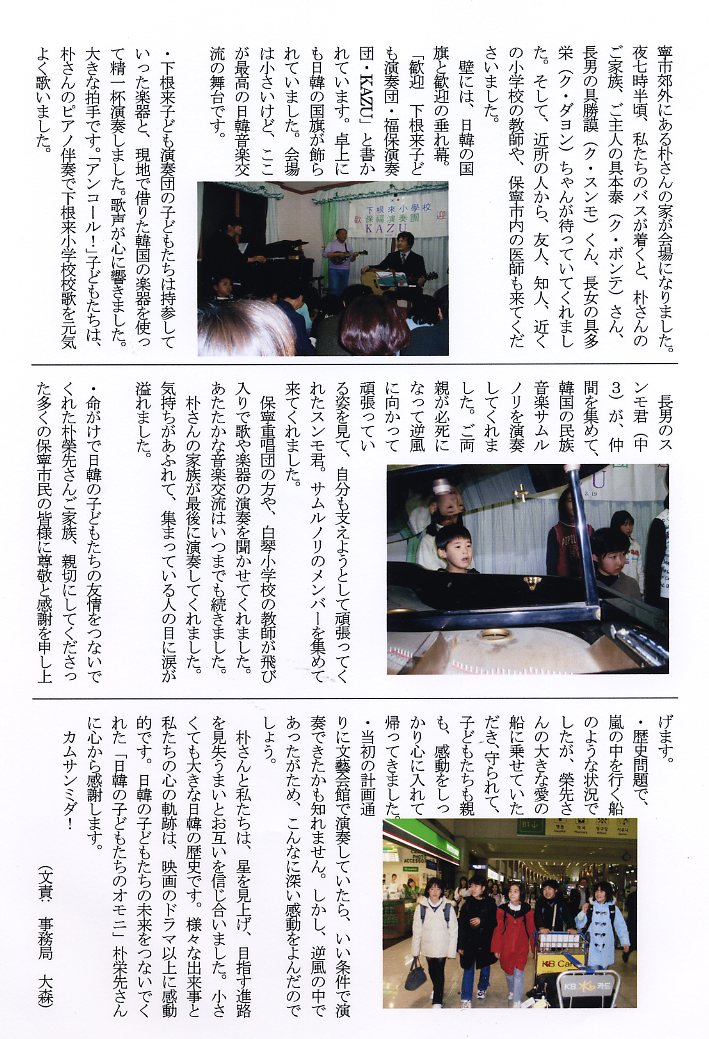 寧市郊外にある朴さんの家が会場になりました。
夜七時半頃、私たちのバスが着くと、朴さんの
ご家族、ご主人の具本泰（ク・ボンテ）さん、
長男の具勝謨（ク・スンモ）くん、長女の具多
栄（ク・ダヨン）ちゃんが待っていてくれまし
た。そして、近所の人から、友人、知人、近く
の小学校の教師や、保寧市内の医師も来てくだ
さいました。
　壁には、日韓の国
旗と歓迎の垂れ幕。
「歓迎　下根来子ど
も演奏団・福保演奏
団・KAZU」と書か
れています。卓上に
も日韓の国旗が飾ら
れていました。会場
は小さいけど、ここ
が最高の日韓音楽交
流の舞台です。
・下根来子ども演奏団の子どもたちは持参して
いった楽器と、現地で借りた韓国の楽器を使っ
て精一杯演奏しました。歌声が心に響きました。
大きな拍手です。「アンコール！」子どもたちは、
朴さんのピアノ伴奏で下根来小学校校歌を元気
よく歌いました。
下根来小學校
歡 保福演奏團 迎
KAZU
　長男のス
ンモ君（中
3）が、仲
間を集めて、
韓国の民族
音楽サムル
ノリを演奏
してくれま
した。ご両
親が必死に
なって逆風
に向かって
頑張ってい
る姿を見て、自分も支えようとして頑張ってく
れたスンモ君。サムルノリのメンバーを集めて
来てくれました。
　保寧重唱団の方や、白琴小学校の教師が飛び
入りで歌や楽器の演奏を聞かせてくれました。
あたたかな音楽交流はいつまでも続きました。
　朴さんの家族が最後に演奏してくれました。
気持ちがあふれて、集まっている人の目に涙が
溢れました。
・命がけで日韓の子どもたちの友情をつないで
くれた朴榮先さんご家族、親切にしてくださっ
た多くの保寧市民の皆様に尊敬と感謝を申し上
U
3.19
げます。
・歴史問題で、
嵐の中を行く船
のような状況で
したが、榮先さ
んの大きな愛の
船に乗せていた
だき、守られて、
子どもたちも親
も、感動をしっ
かり心に入れて
帰ってきました。
・当初の計画通
りに文藝会館で演奏していたら、いい条件で演
奏できたかも知れません。しかし、逆風の中で
あったがため、こんなに深い感動をよんだので
しょう。
　朴さんと私たちは、星を見上げ、目指す進路
を見失うまいとお互いを信じ合いました。小さ
くても大きな日韓の歴史です。様々な出来事と
私たちの心の軌跡は、映画のドラマ以上に感動
的です。日韓の子どもたちの未来をつないでく
れた「日韓の子どもたちのオモニ」朴栄先さん
に心から感謝します。
　カムサンミダ！
（文責：　事務局　大森）
ACCESSORI
KB Card
KB 카드